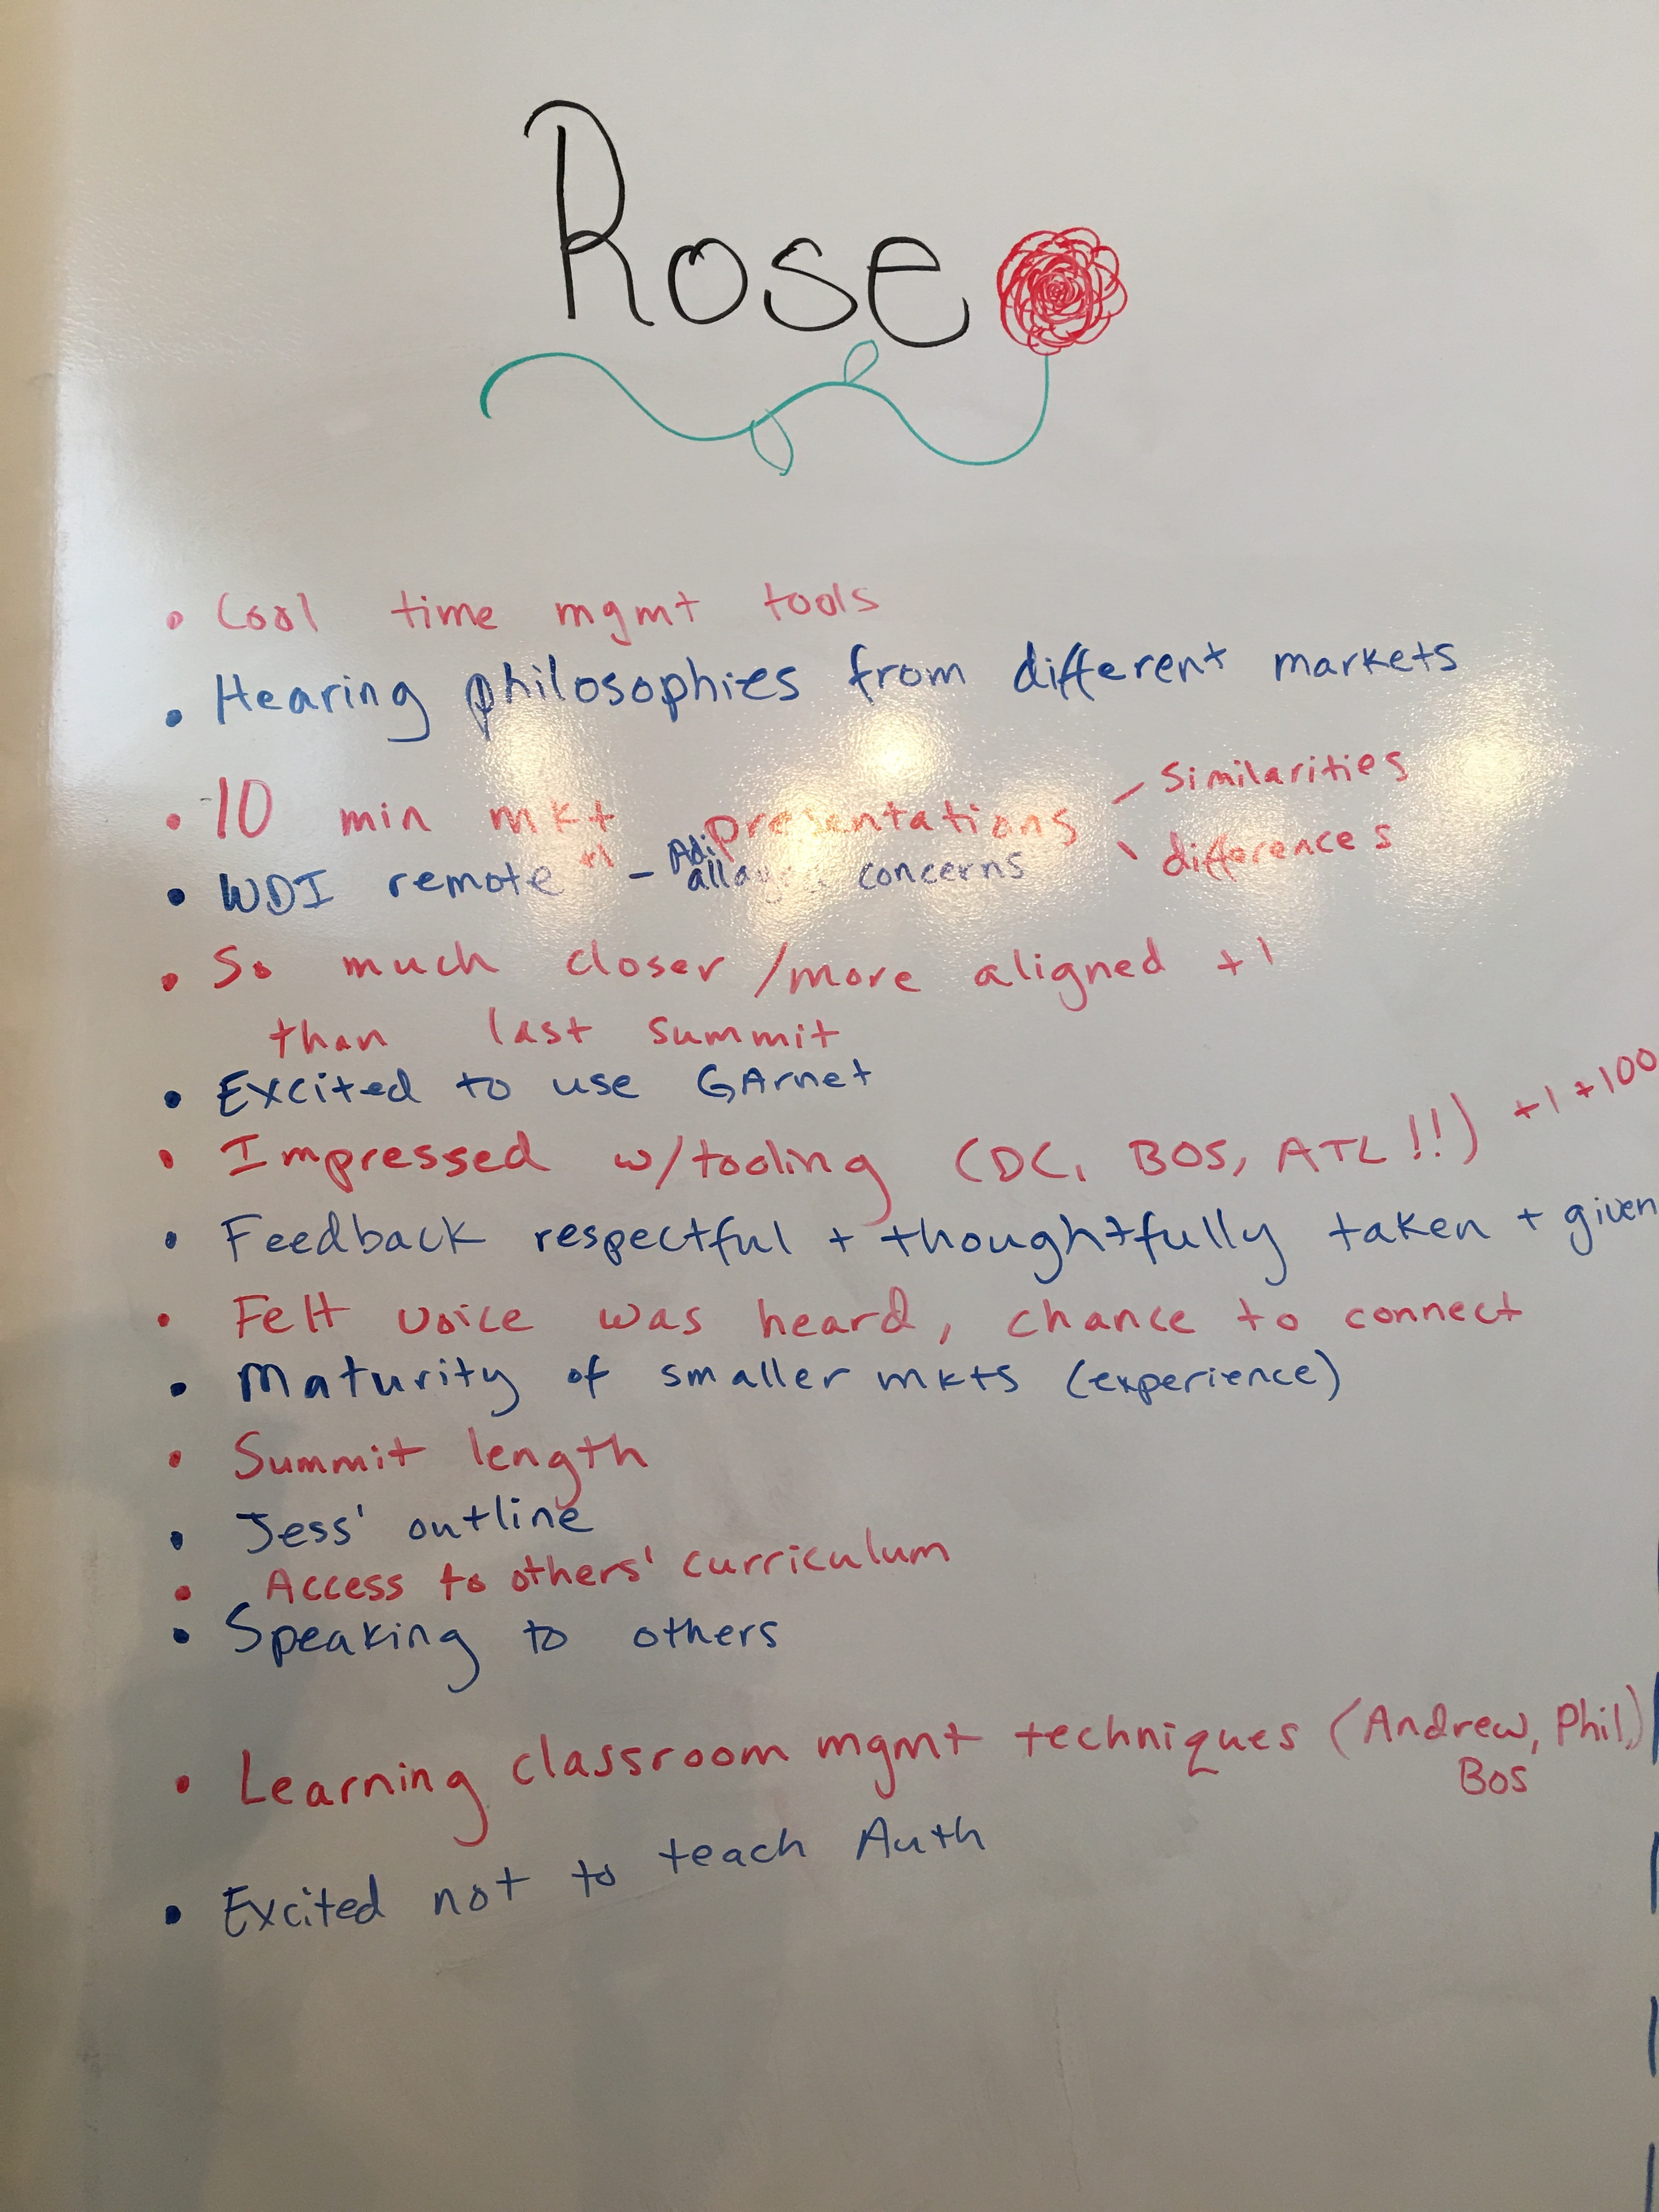 Rose
• Cool time mgmt tools
• Hearing philosophies from different markets
• 10 min mkt presentations – similarities
– differences
• WDI remote +1 – Adi allayed concerns
• So much closer/more aligned +1
than last summit
• Excited to use GArnet
• Impressed w/tooling (DC, BOS, ATL!!) +1 +100
• Feedback respectful + thoughtfully taken + given
• Felt voice was heard, chance to connect
• Maturity of smaller mkts (experience)
• Summit length
• Jess' outline
• Access to others' curriculum
• Speaking to others
• Learning classroom mgmt techniques (Andrew, Phil,)
BOS
• Excited not to teach Auth